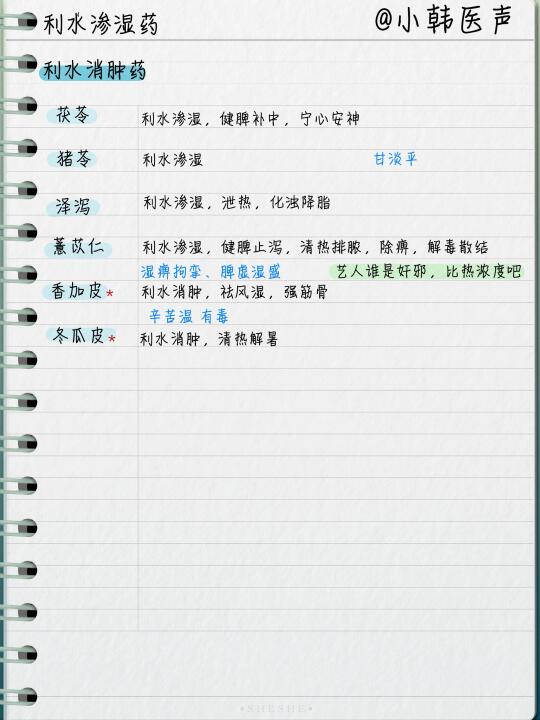 利水渗湿药
@小韩医声
利水消肿药
茯苓 利水渗湿，健脾补中，宁心安神
猪苓 利水渗湿 甘淡平
泽泻 利水渗湿，泄热，化浊降脂
薏苡仁 利水渗湿，健脾止泻，清热排脓，除痹，解毒散结
湿痹拘挛、脾虚湿盛 艺人谁是奸邪，比热浓度吧
香加皮* 利水消肿，祛风湿，强筋骨
辛苦温 有毒
冬瓜皮* 利水消肿，清热解暑
•SHESHE•